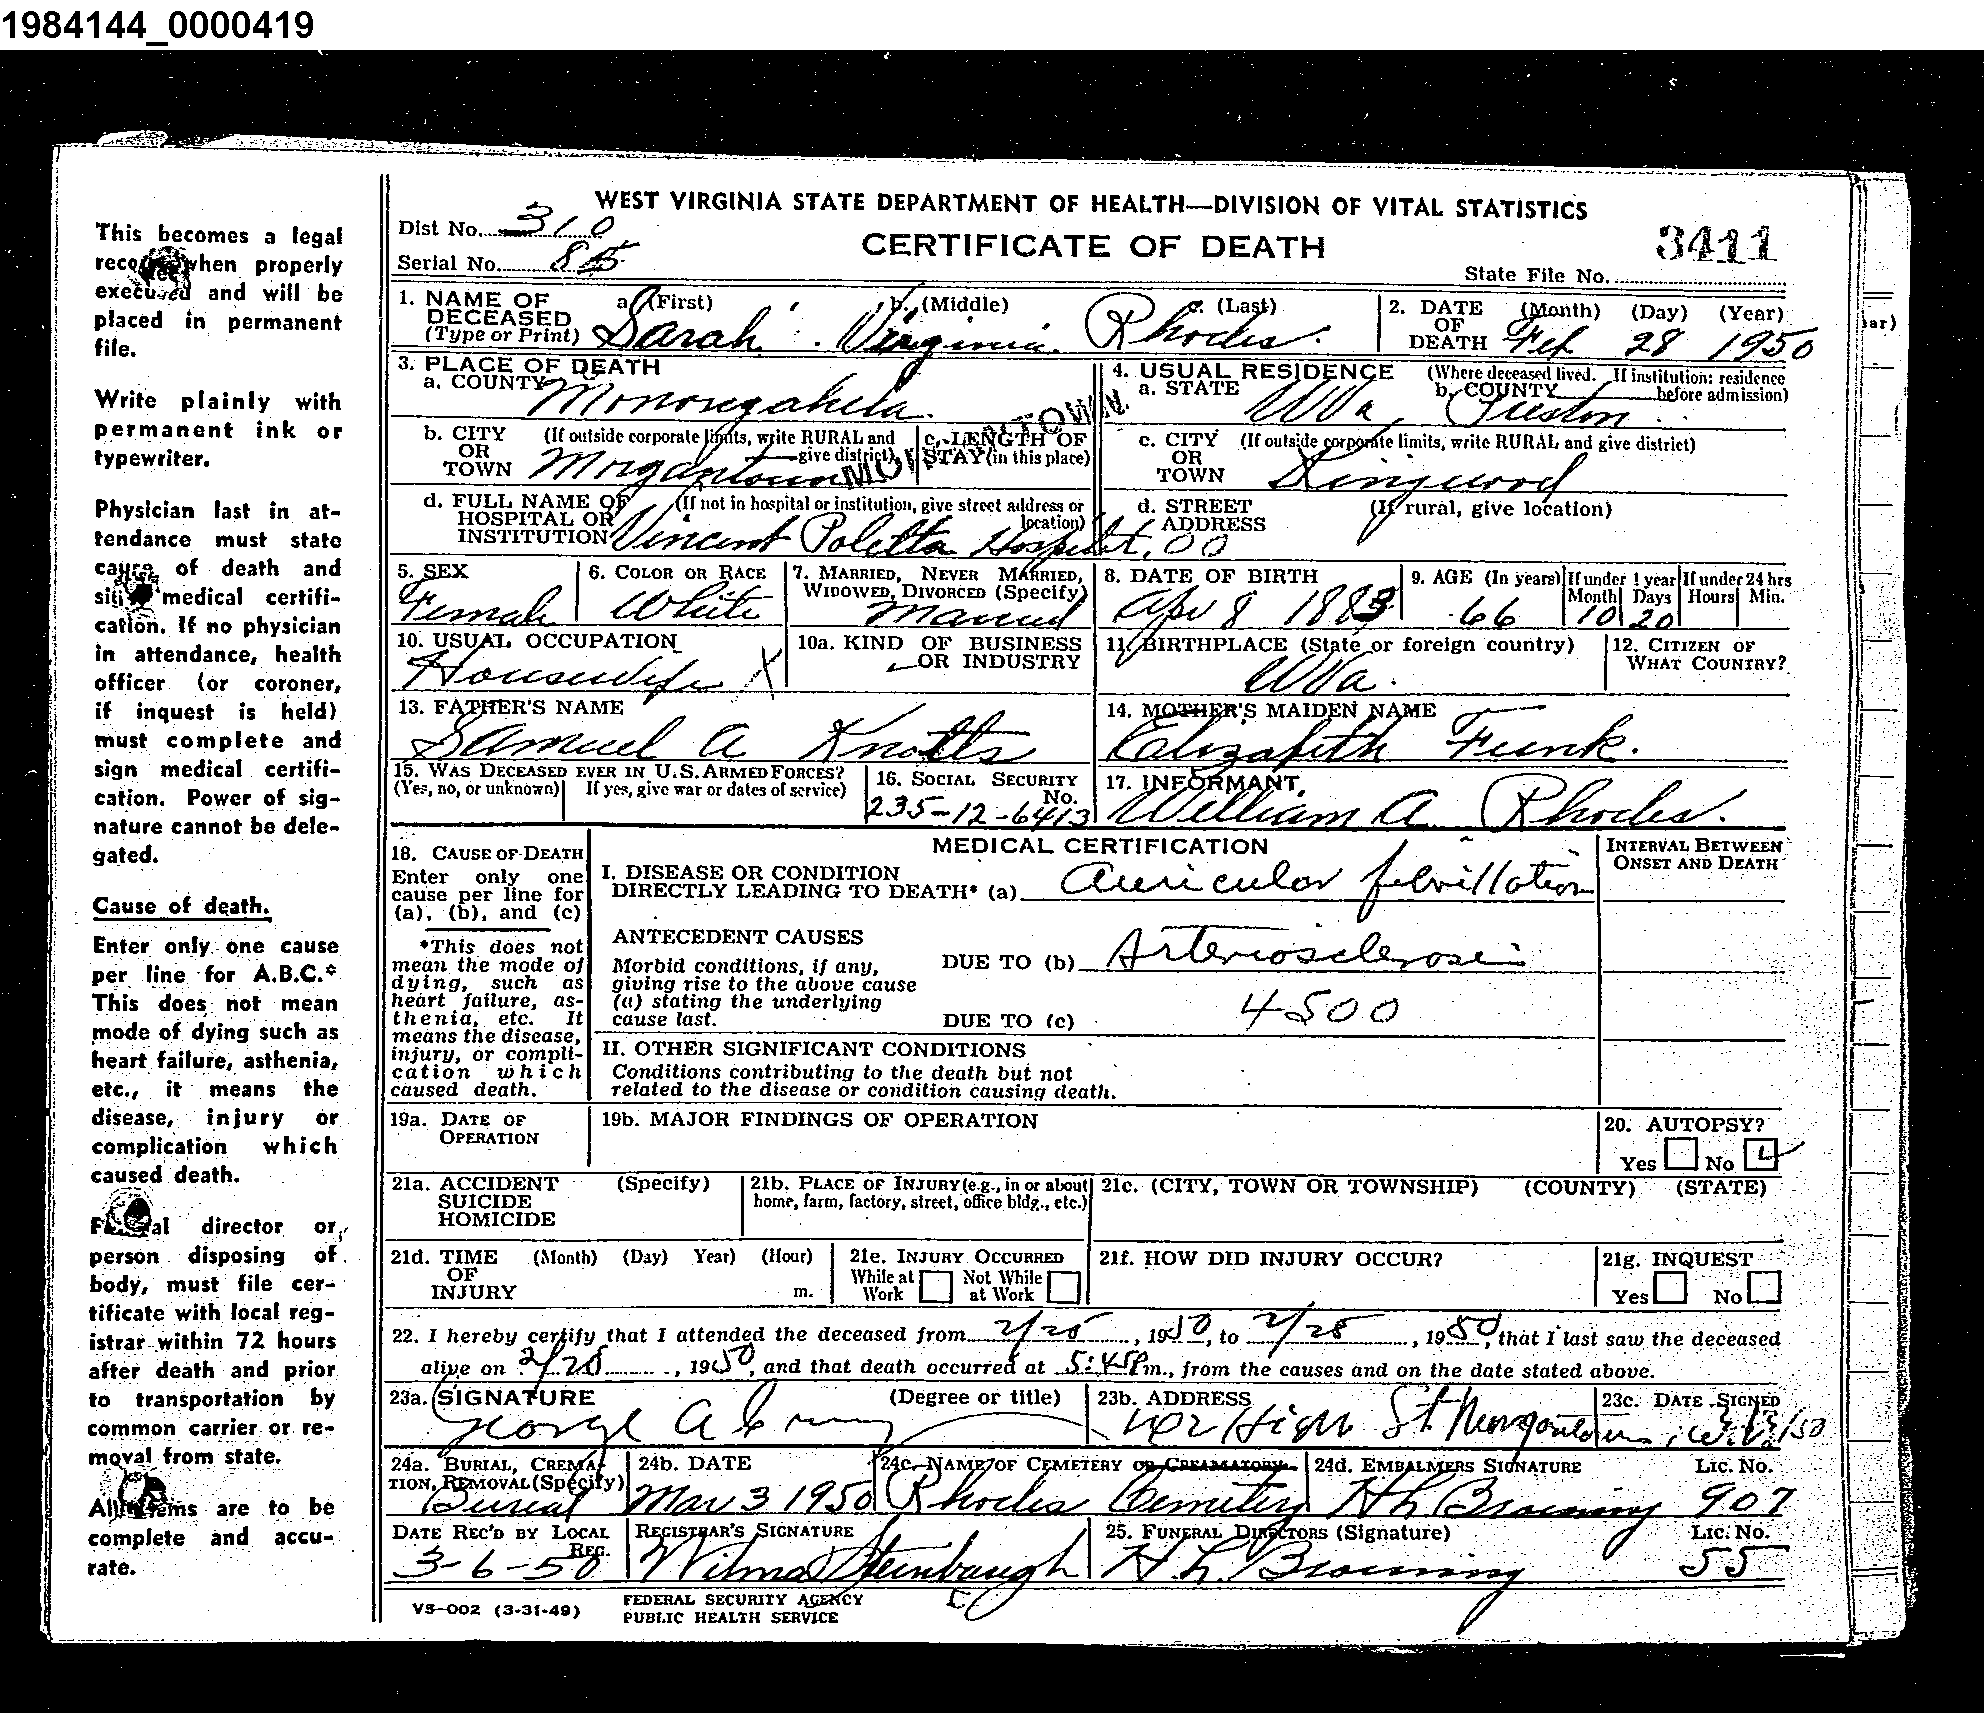 1984144_0000419
This becomes a legal
record when properly
executed and will be
placed in permanent
file.
Write plainly with
permanent ink or
typewriter.
Physician last in at-
tendance must state
cause of death and
medical certifi-
cation. If no physician
in attendance, health
officer (or coroner,
if inquest is held)
must complete and
sign medical certifi-
cation. Power of sig-
nature cannot be dele-
gated.
Cause of death.
Enter only one cause
per line for A.B.C.*
This does not mean
mode of dying such as
heart failure, asthenia,
etc., it means the
disease, injury or
complication which
caused death.
Funeral director or
person disposing of
body, must file cer-
tificate with local reg-
istrar within 72 hours
after death and prior
to transportation by
common carrier or re-
moval from state.
All items are to be
complete and accu-
rate.
WEST VIRGINIA STATE DEPARTMENT OF HEALTH—DIVISION OF VITAL STATISTICS
Dist No. 310
CERTIFICATE OF DEATH
3411
Serial No. 85
State File No.
1. NAME OF DECEASED (Type or Print) a. (First) b. (Middle) c. (Last)
Sarah Virginia Rhodes.
2. DATE OF DEATH (Month) (Day) (Year)
Feb 28 1950
3. PLACE OF DEATH
a. COUNTY Monongahela
4. USUAL RESIDENCE (Where deceased lived. If institution: residence before admission)
a. STATE WVa b. COUNTY Preston
b. CITY OR TOWN (If outside corporate limits, write RURAL and give district) Morgantown
c. LENGTH OF STAY (in this place)
c. CITY OR TOWN (If outside corporate limits, write RURAL and give district) Kingwood
d. FULL NAME OF HOSPITAL OR INSTITUTION (If not in hospital or institution, give street address or location)
Vincent Poletta Hospital, 00
d. STREET ADDRESS (If rural, give location)
5. SEX Female
6. COLOR OR RACE White
7. MARRIED, NEVER MARRIED, WIDOWED, DIVORCED (Specify) Married
8. DATE OF BIRTH Apr 8 1883
9. AGE (In years) 66
If under 1 year Month 10 Days 20
If under 24 hrs Hours Min.
10. USUAL OCCUPATION Housewife X
10a. KIND OF BUSINESS OR INDUSTRY
11. BIRTHPLACE (State or foreign country) WVa.
12. CITIZEN OF WHAT COUNTRY?
13. FATHER'S NAME Samuel A Knotts
14. MOTHER'S MAIDEN NAME Elizabeth Funk.
15. WAS DECEASED EVER IN U.S. ARMED FORCES?
(Yes, no, or unknown) If yes, give war or dates of service)
16. SOCIAL SECURITY No. 235-12-6413
17. INFORMANT William A. Rhodes.
MEDICAL CERTIFICATION
INTERVAL BETWEEN ONSET AND DEATH
18. CAUSE OF DEATH
Enter only one
cause per line for
(a), (b), and (c)
*This does not
mean the mode of
dying, such as
heart failure, as-
thenia, etc. It
means the disease,
injury, or compli-
cation which
caused death.
I. DISEASE OR CONDITION
DIRECTLY LEADING TO DEATH* (a) Auricular fibrillation
ANTECEDENT CAUSES
Morbid conditions, if any,
giving rise to the above cause
(a) stating the underlying
cause last.
DUE TO (b) Arteriosclerosis
4500
DUE TO (c)
II. OTHER SIGNIFICANT CONDITIONS
Conditions contributing to the death but not
related to the disease or condition causing death.
19a. DATE OF OPERATION
19b. MAJOR FINDINGS OF OPERATION
20. AUTOPSY?
Yes No
21a. ACCIDENT SUICIDE HOMICIDE (Specify)
21b. PLACE OF INJURY (e.g., in or about home, farm, factory, street, office bldg., etc.)
21c. (CITY, TOWN OR TOWNSHIP) (COUNTY) (STATE)
21d. TIME OF INJURY (Month) (Day) Year) (Hour) m.
21e. INJURY OCCURRED
While at Work Not While at Work
21f. HOW DID INJURY OCCUR?
21g. INQUEST
Yes No
22. I hereby certify that I attended the deceased from 2/25, 1950, to 2/28, 1950, that I last saw the deceased
alive on 2/28, 1950, and that death occurred at 5:45Pm., from the causes and on the date stated above.
23a. SIGNATURE (Degree or title)
George A
23b. ADDRESS
High St Morgantown, W.V.
23c. DATE SIGNED
24a. BURIAL, CREMATION, REMOVAL (Specify) Burial
24b. DATE Mar 3 1950
24c. NAME OF CEMETERY OR CREAMATORY Rhodes Cemetery
24d. EMBALMERS SIGNATURE Lic. No.
H L Browning 907
DATE REC'D BY LOCAL REG. 3-6-50
REGISTRAR'S SIGNATURE Wilma Steinbaugh
25. FUNERAL DIRECTORS (Signature) Lic. No.
H. L. Browning 55
VS-002 (3-31-49)
FEDERAL SECURITY AGENCY
PUBLIC HEALTH SERVICE